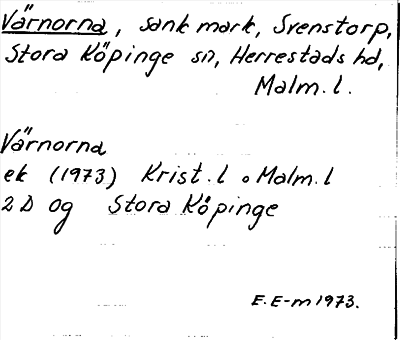 Värnorna, sank mark, Svenstorp,
Stora Köpinge sn, Herrestads hd,
Malm. l.
Värnorna
ek (1973) Krist. l o Malm. l
2 D 0g Stora Köpinge
E. E-m 1973.